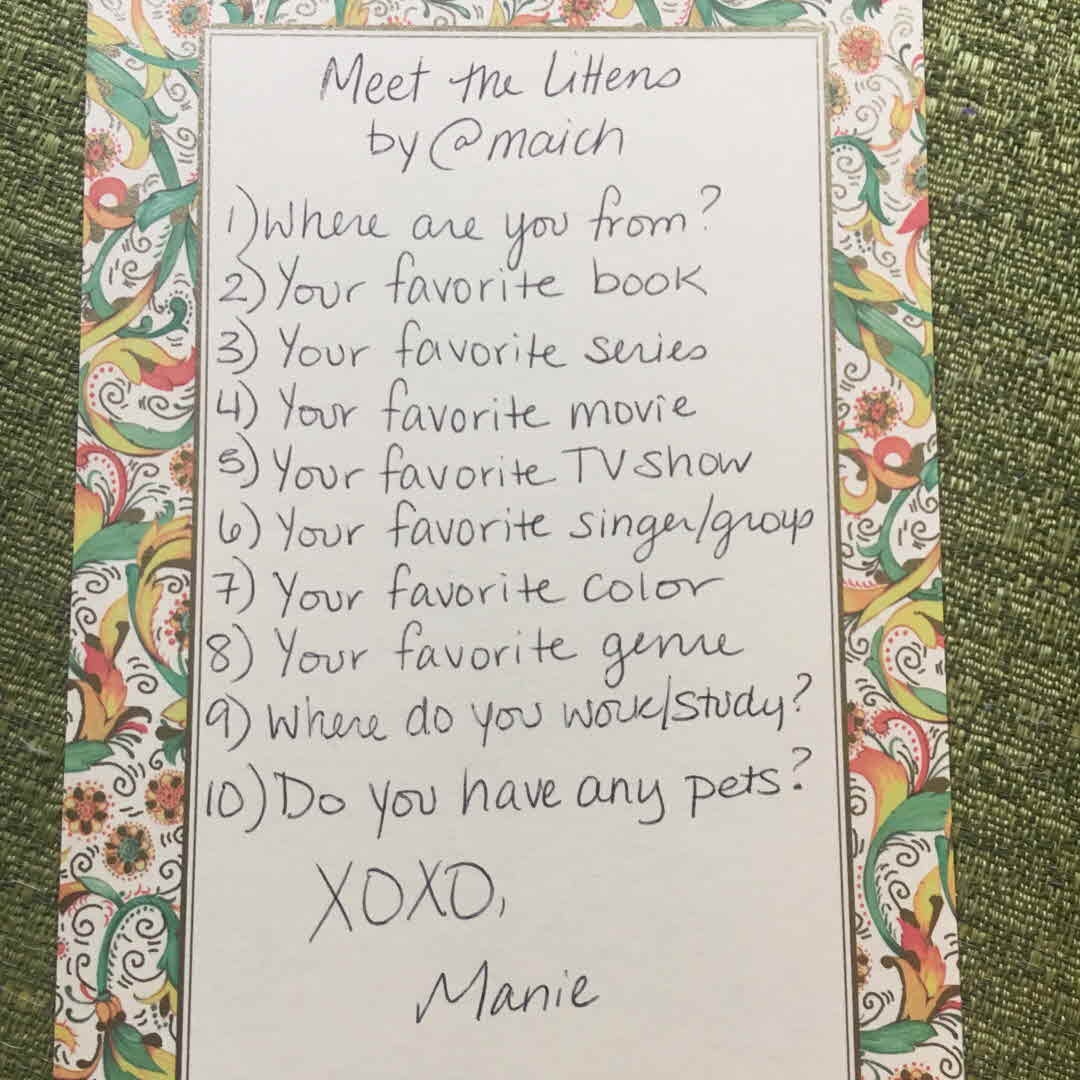 Meet the Littens
by @maich
1) Where are you from?
2) Your favorite book
3) Your favorite series
4) Your favorite movie
5) Your favorite TV show
6) Your favorite singer/group
7) Your favorite color
8) Your favorite genre
9) Where do you work/study?
10) Do you have any pets?
XOXO,
Manie